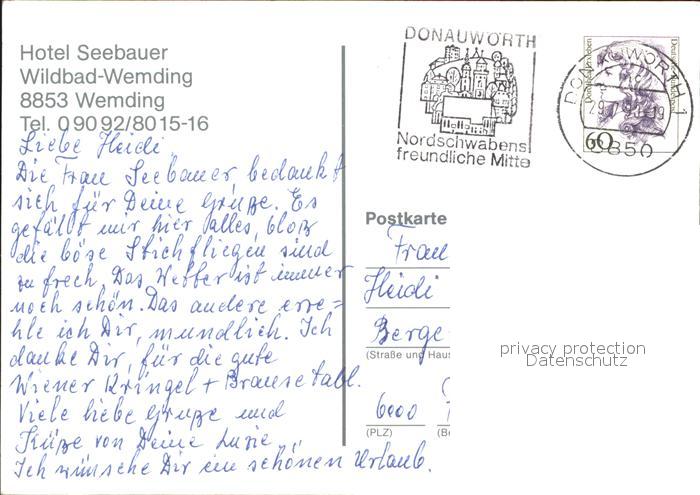 Hotel Seebauer
Wildbad-Wemding
8853 Wemding
Tel. 09092/8015-16
Liebe Heidi
Die Frau Seebauer bedankt
sich für Deine Grüße. Es
gefällt mir hier alles, bloß
die böse Stichfliegen sind
zu frech. Das Wetter ist immer
noch schön. Das andere erzä=
hle ich Dir, mundlich. Ich
danke Dir, für die gute
Wiener Kringel + Brausetabl.
Viele liebe Grüße und
Küße von Deine Luzie
Ich wünsche Dir ein schönen Urlaub.
DONAUWÖRTH
Nordschwabens
freundliche Mitte
DONAUWÖRTH 1
8850
60
Postkarte
Frau
Heidi
Berge
(Straße und Haus
6000
(PLZ)
privacy protection
Datenschutz